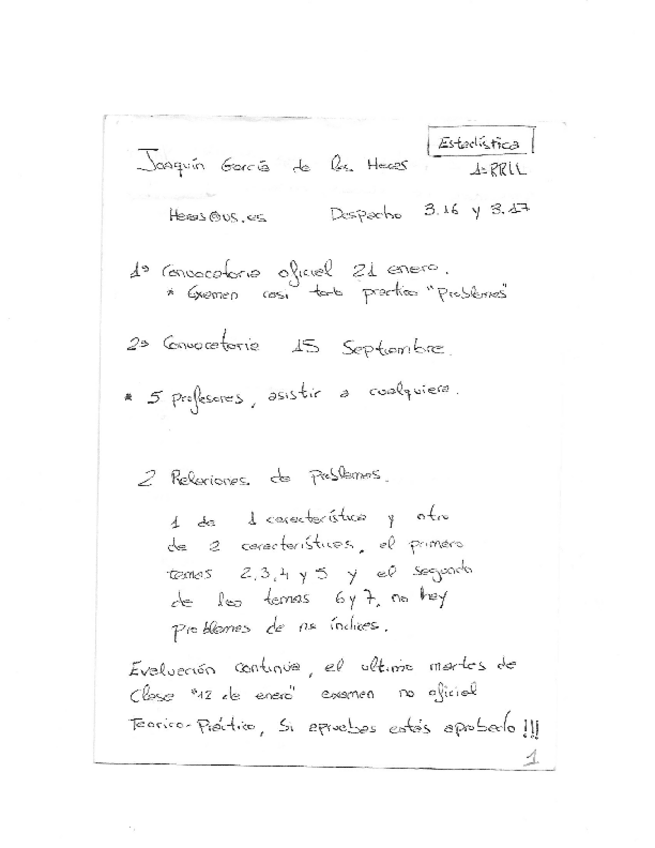 Estadística
Joaquín García de las Heras
1º RRLL
Heras@us.es Despacho 3.16 y 3.17
1ª Convocatoria oficial 21 enero.
* Examen casi todo practico "Problemas"
2ª Convocatoria 15 Septiembre.
* 5 profesores, asistir a cualquiera.
2 Relaciones de problemas.
1 de 1 característica y otro
de 2 características, el primero
temas 2,3,4 y 5 y el segundo
de los temas 6 y 7, no hay
problemas de nº índices.
Evaluación continua, el ultimo martes de
Clase "12 de enero" examen no oficial
Teorico-Práctico, Si apruebas estás aprobado!!!
1